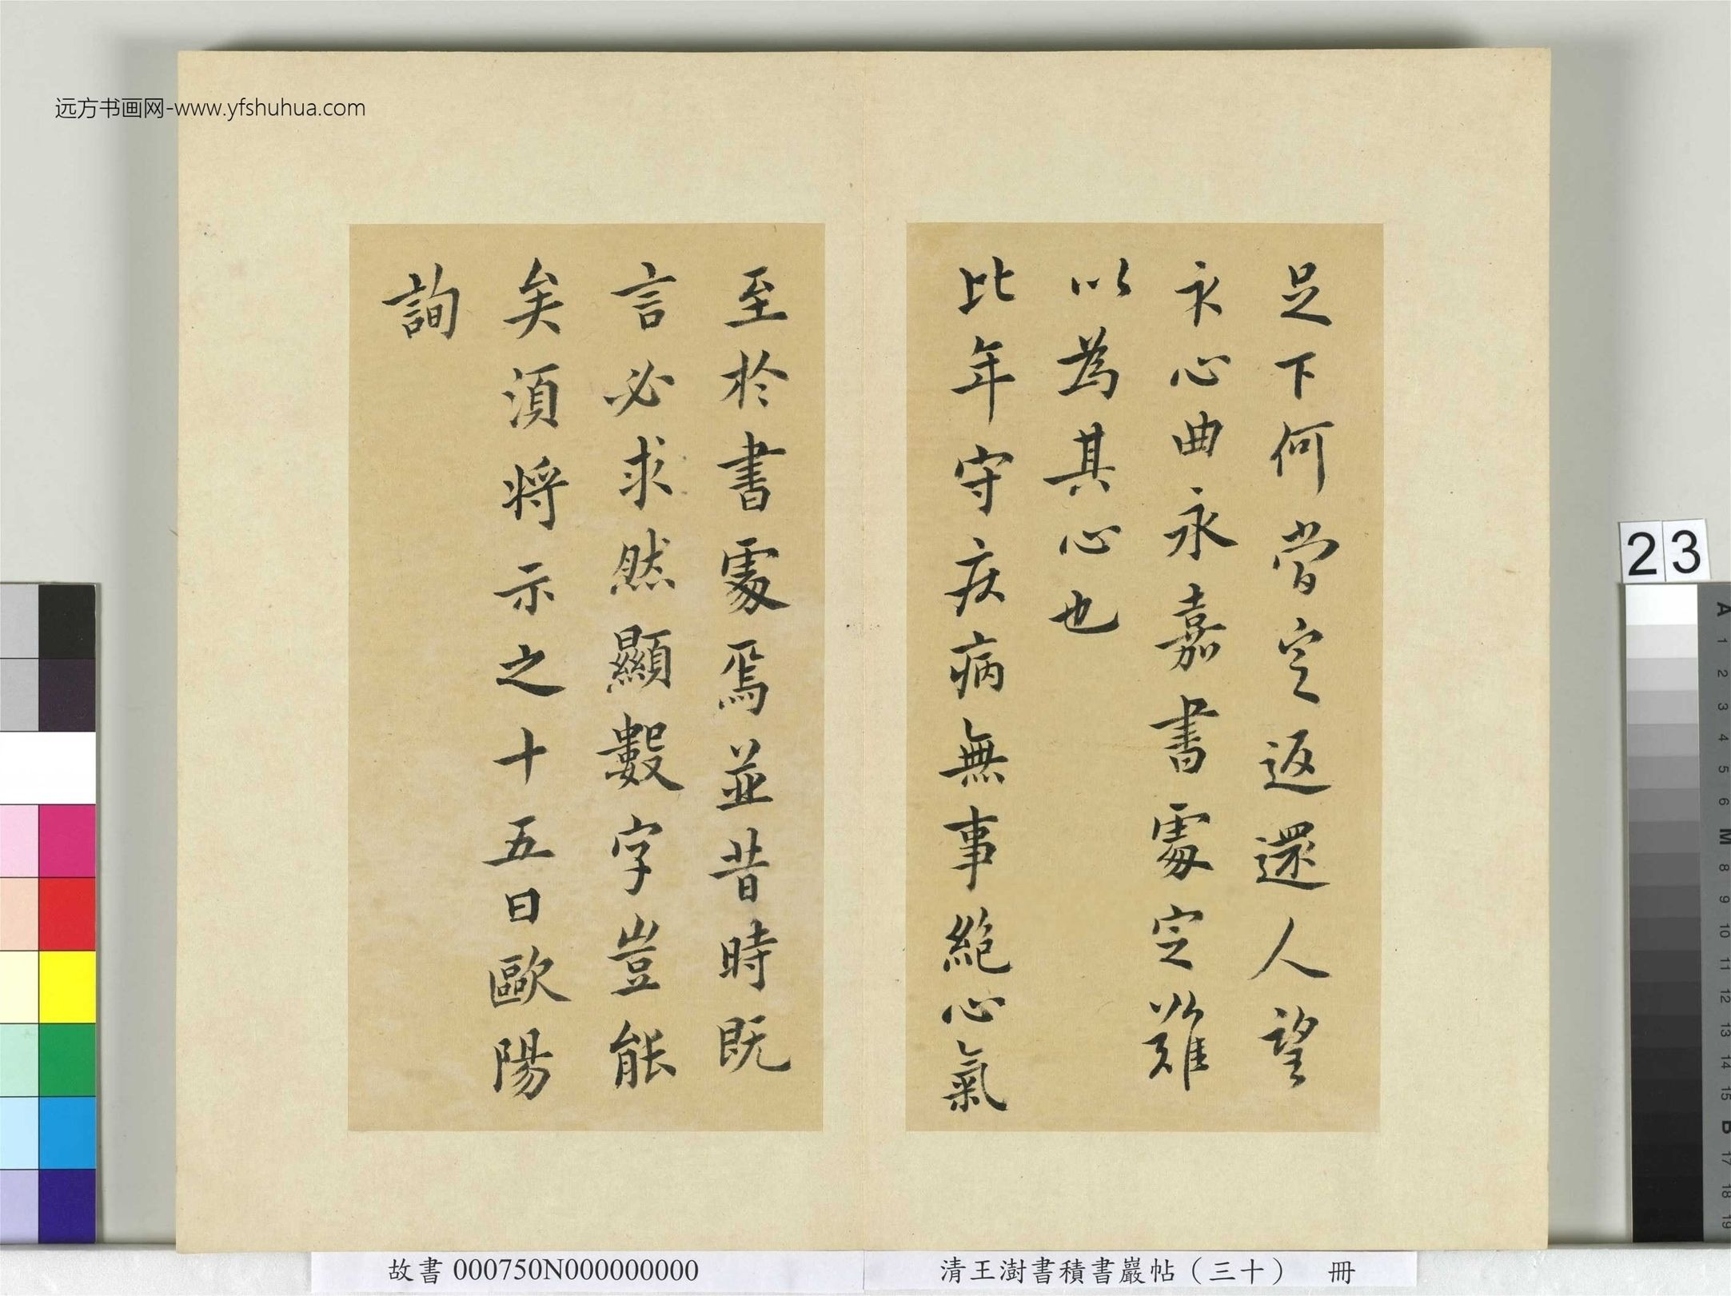 远方书画网-www.yfshuhua.com
足下何當定返還人望
永心曲永嘉書處定難
以為其心也
比年守疾病無事絕心氣
至於書處焉並昔時既
言必求然顯數字豈能
矣須將示之十五日歐陽
詢
23
故書 000750N000000000
清王澍書積書巖帖(三十) 冊